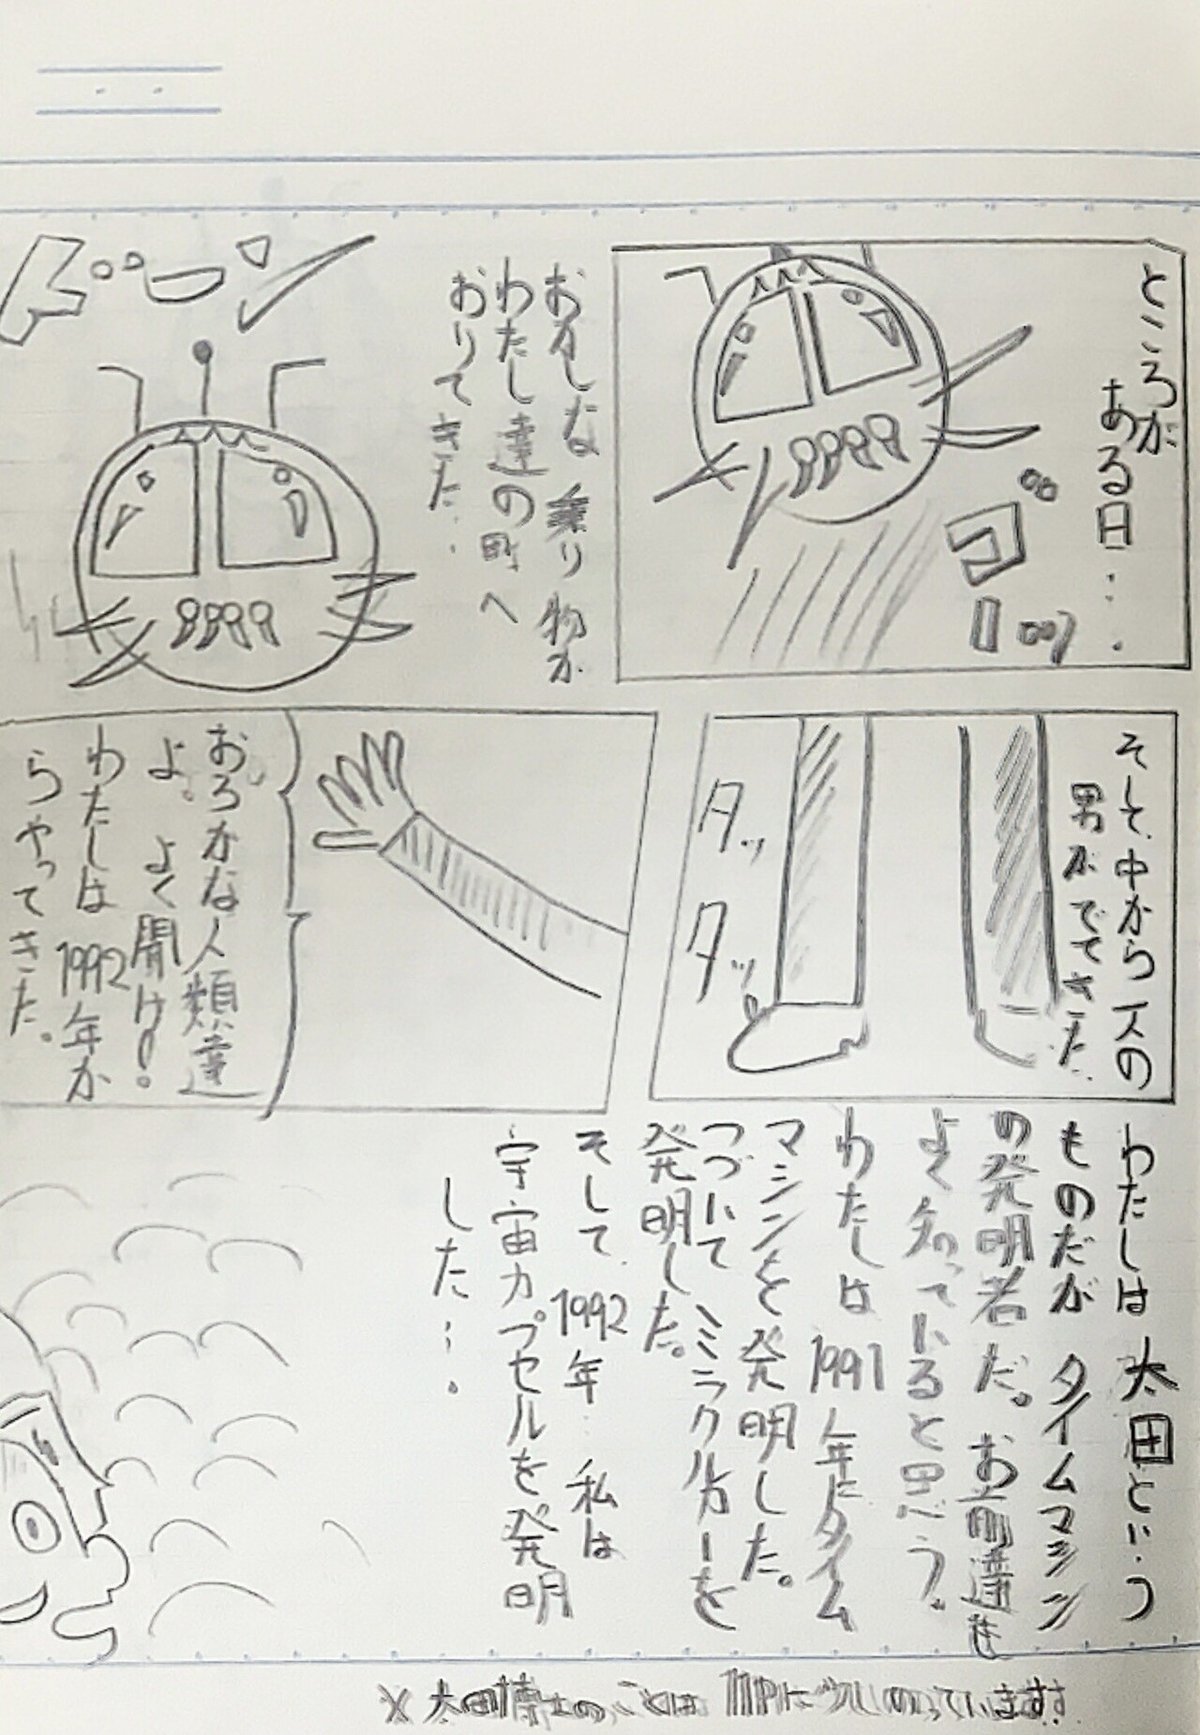 ところが
ある日…
ゴーッ
おかしな乗り物が
わたし達の町へ
おりてきた…
ドーン
そして、中から一人の
男がでてきた…
タッ
タッ
おろかな人類達
よ。よく聞け!
わたしは1992年か
らやってきた。
わたしは太田という
ものだがタイムマシン
の発明者だ。お前達も
よく知っていると思う。
わたしは1991年にタイム
マシンを発明した。
つづいてミラクルカーを
発明した。
そして、1992年、私は
宇宙カプセルを発明
した…。
※太田博士のことは
っています